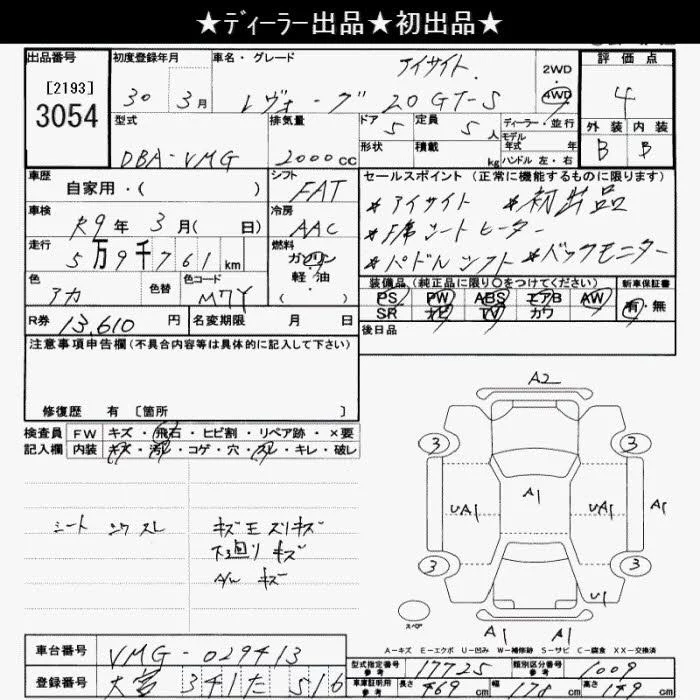 ★ディーラー出品★初出品★
出品番号
[2193]
3054
初度登録年月
30年3月
車名・グレード
アイサイト
レヴォーグ 2.0GT-S
2WD
4WD
評価点
4
外装 内装
B B
型式
DBA-VMG
排気量
2000cc
ドア
5
定員
5人
形状
積載
kg
ディーラー・並行
モデル
年式 年
ハンドル 左・右
車歴
自家用・( )
シフト
FAT
車検
R9年3月( 日)
冷房
AAC
走行
5万9千761km
燃料
ガソリン
軽・油
・( )
色
アカ
色替
色コード
M7Y
R券 13,610円
名変期限 月 日
セールスポイント(正常に機能するものに限ります)
*アイサイト *初出品
*F席シートヒーター
*パドルシフト *バックモニター
装備品(純正品に限り○をつけてください)
PS PW ABS エアB AW
SR ナビ TV カワ
新車保証書
有・無
後日品
注意事項申告欄(不具合内容等は具体的に記入して下さい)
修復歴 有 〔箇所 〕
検査員
記入欄
FW キズ・飛石・ヒビ割・リペア跡・×要
内装 キズ・汚レ・コゲ・穴・スレ・キレ・破レ
シート シワ スレ
キズ王 スリキズ
下廻り キズ
A/W キズ
A2
3 3
A1
UA1 UA1 A1
3 3
U1
スペア
A1 A1
A-キズ E-エクボ U-凹み W-補修跡 S-サビ C-腐食 XX-交換済
車台番号 VMG-029413
登録番号 大宮 341 た 516
型式指定番号
参考
17725
類別区分番号
参考
1009
車庫証明用
参考
長さ 469cm
幅 178cm
高さ 149cm